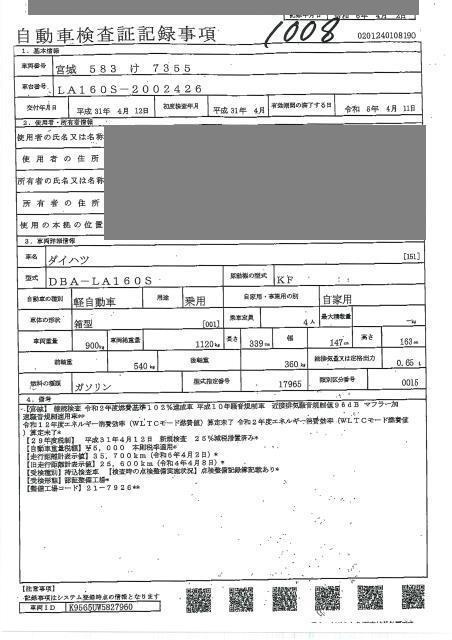 1008
自動車検査証記録事項
0201240108190
1. 基本情報
車両番号 宮城 583 け 7355
車台番号 LA160S-2002426
交付年月日 平成31年 4月 12日 初度検査年月 平成31年 4月 有効期間の満了する日 令和 8年 4月 11日
2. 使用者・所有者情報
使用者の氏名又は名称
使用者の住所
所有者の氏名又は名称
所有者の住所
使用の本拠の位置
3. 車両詳細情報
車名 ダイハツ [151]
型式 DBA-LA160S 原動機の型式 KF
自動車の種別 軽自動車 用途 乗用 自家用・事業用の別 自家用
車体の形状 箱型 [001] 乗車定員 4人 最大積載量 -kg
車両重量 900kg 車両総重量 1120kg 長さ 339cm 幅 147cm 高さ 163cm
前軸重 540kg 後軸重 360kg 総排気量又は定格出力 0.65 L
燃料の種類 ガソリン 型式指定番号 17965 類別区分番号 0015
4. 備考
【宮城】 継続検査 令和2年度燃費基準102%達成車 平成10年騒音規制車 近接排気騒音規制値96dB マフラー加
速騒音規制適用車**
令和12年度エネルギー消費効率(WLTCモード燃費値)算定未了 令和2年度エネルギー消費効率(WLTCモード燃費値
)算定未了*
【29年度税制】 平成31年4月12日 新規検査 25%減税措置済み*
【自動車重量税額】 ¥5,000 本則税率適用*
【走行距離計表示値】 35,700km(令和6年4月2日)*
【旧走行距離計表示値】 25,600km(令和4年4月8日)*
【受検種別】持込検査車 【検査時の点検整備実施状況】点検整備記録簿記載あり*
【受検形態】認証整備工場*
【整備工場コード】21-7926**
【注意事項】
記録事項はシステム登録時点の情報となります
車両ID K9565UW5827960